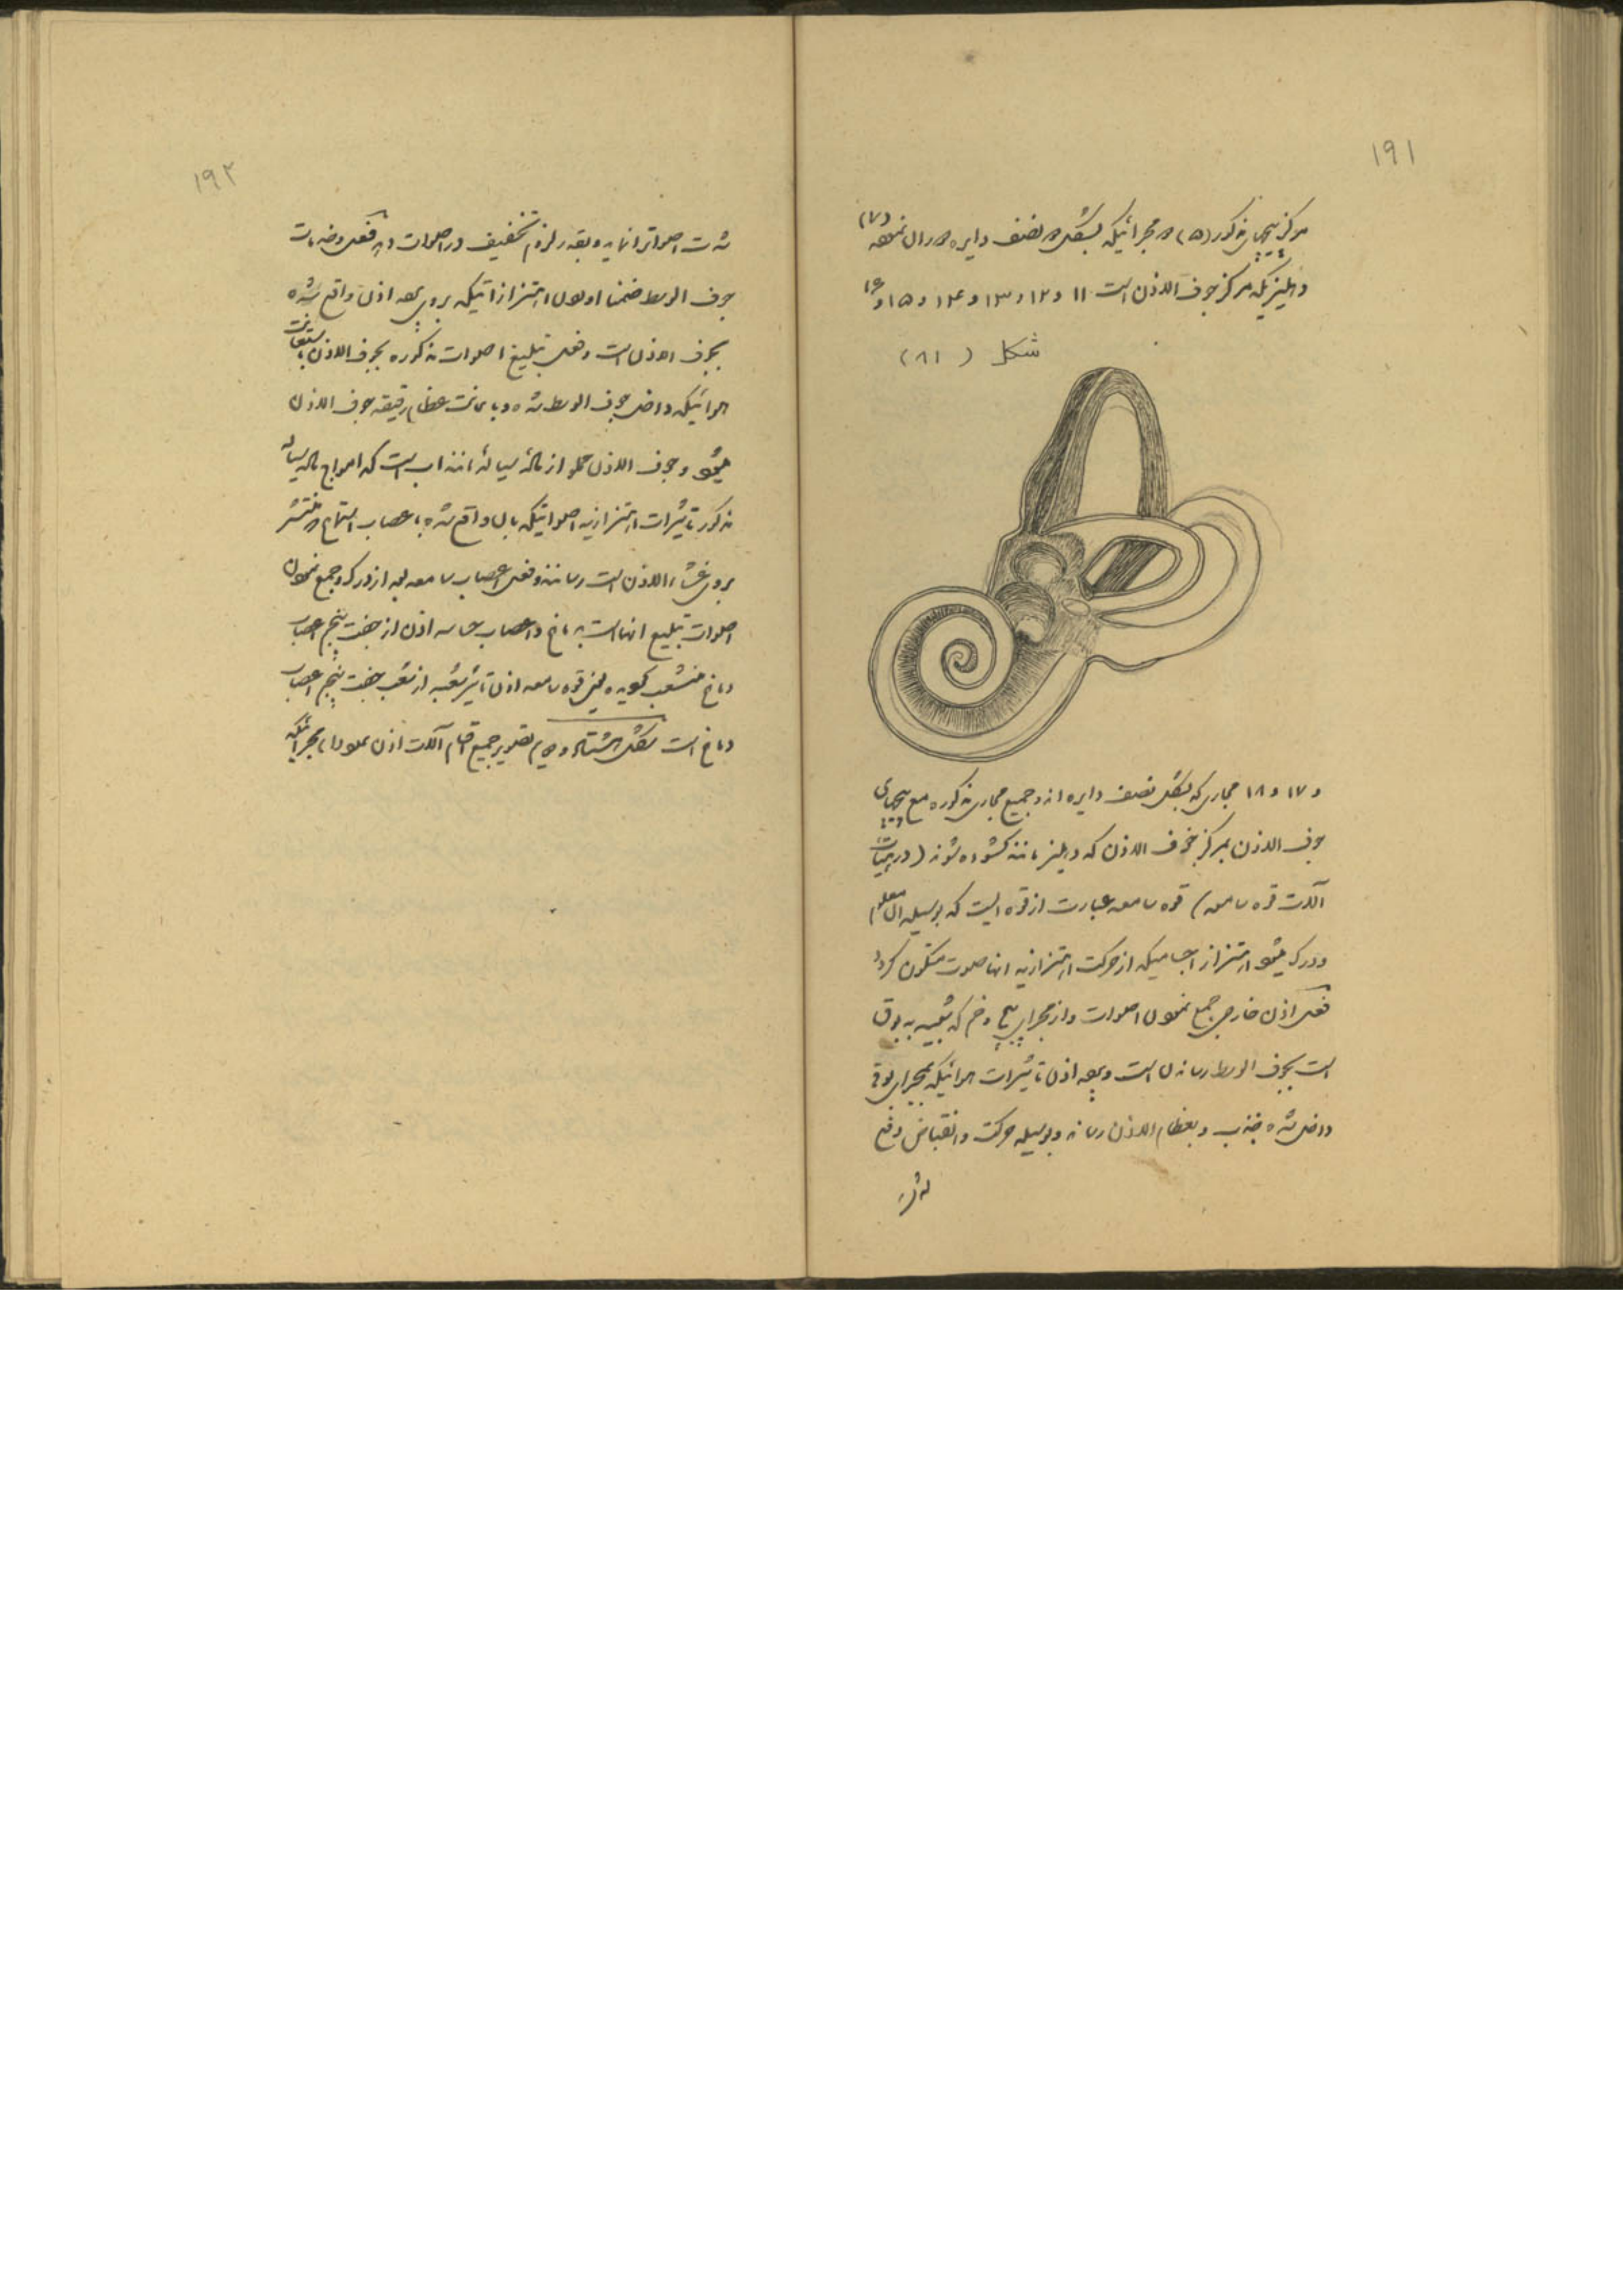 ۱۹۱
مرکز پیچهای مذکور (۵) مجرائیکه بشکل نصف دایره (۷)
دهلیزیکه مرکز جوف الاذن است ۱۱ و ۱۲ و ۱۳ و ۱۴ و ۱۵ و ۱۶
شکل (۸۱)
و ۱۷ و ۱۸ مجاری که بشکل نصف دایره اند و جمیع مجاری مذکوره مع پیچهای
جوف الاذن بمرکز جوف الاذن که دهلیز مانند گشوده شوند (در بیان
آلات قوه سامعه) قوه سامعه عبارت از قوه ایست که بوسیله آن معلوم
و درک میشود اهتزاز اجسامیکه از حرکت اهتزازیه انها صوت متکون گردد
فعل اذن خارجی جمع نمودن اصوات و از مجرای پیچ و خم که شبیه به بوق
است بجوف الوسط رساندن است و پرده اذن تاثیرات هوائیکه بمجرای بوقی
داخل شده جذب و بعظام الاذن رساند و بوسیله حرکت و انقباض دفع
۱۹۲
شدت اصواترا نماید و بقدر لزوم تخفیف در اصوات دهد فعل و خدمات
جوف الوسط ضمنا اهتزازاتیکه بروی پرده اذن واقع شده
بجوف الاذن است و فعل تبلیغ اصوات مذکوره بجوف الاذن
هوائیکه داخل جوف الوسط شده و با عظام رقیقه جوف الاذن
میشود و جوف الاذن مملو از ماده سیاله مانند اب است که امواج ماده سیاله
مذکور تاثیرات اهتزازیه اصواتیکه بان واقع شده باعصاب استماع که منتشر
بروی غشاء الاذن است رسانند و فعل اعصاب سامعه بعد از درک و جمع نمودن
اصوات تبلیغ انها است بدماغ و اعصاب حاسه اذن از جفت پنجم اعصاب
دماغ منشعب گردیده یعنی قوه سامعه اذن تاثیر شعبه از شعب جفت پنجم اعصاب
دماغ است شکل هشتاد و دویم تصویر جمیع اقسام آلات اذن مجرائیکه